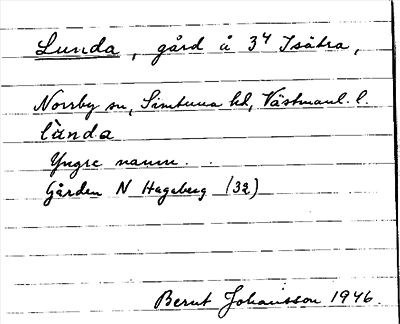 Lunda, gård å 3⁴ Isätra,
Norrby sn, Simtuna hd, Västmanl. l.
lùnda
Yngre namn. .
Gården N Hageberg (32)
Bernt Johansson 1946.